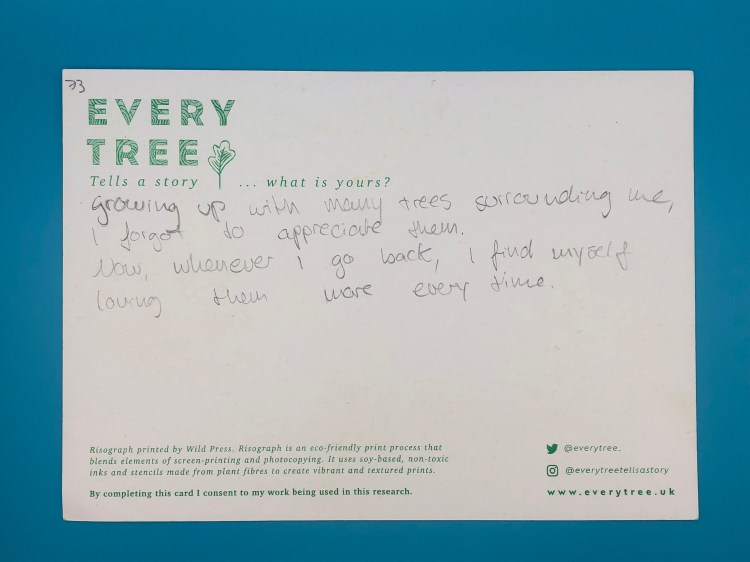 73
EVERY
TREE
Tells a story ... what is yours?
growing up with many trees surrounding me,
I forgot to appreciate them.
Now, whenever I go back, I find myself
loving them more every time.
Risograph printed by Wild Press. Risograph is an eco-friendly print process that
blends elements of screen-printing and photocopying. It uses soy-based, non-toxic
inks and stencils made from plant fibres to create vibrant and textured prints.
By completing this card I consent to my work being used in this research.
@everytree_
@everytreetellsastory
www.everytree.uk